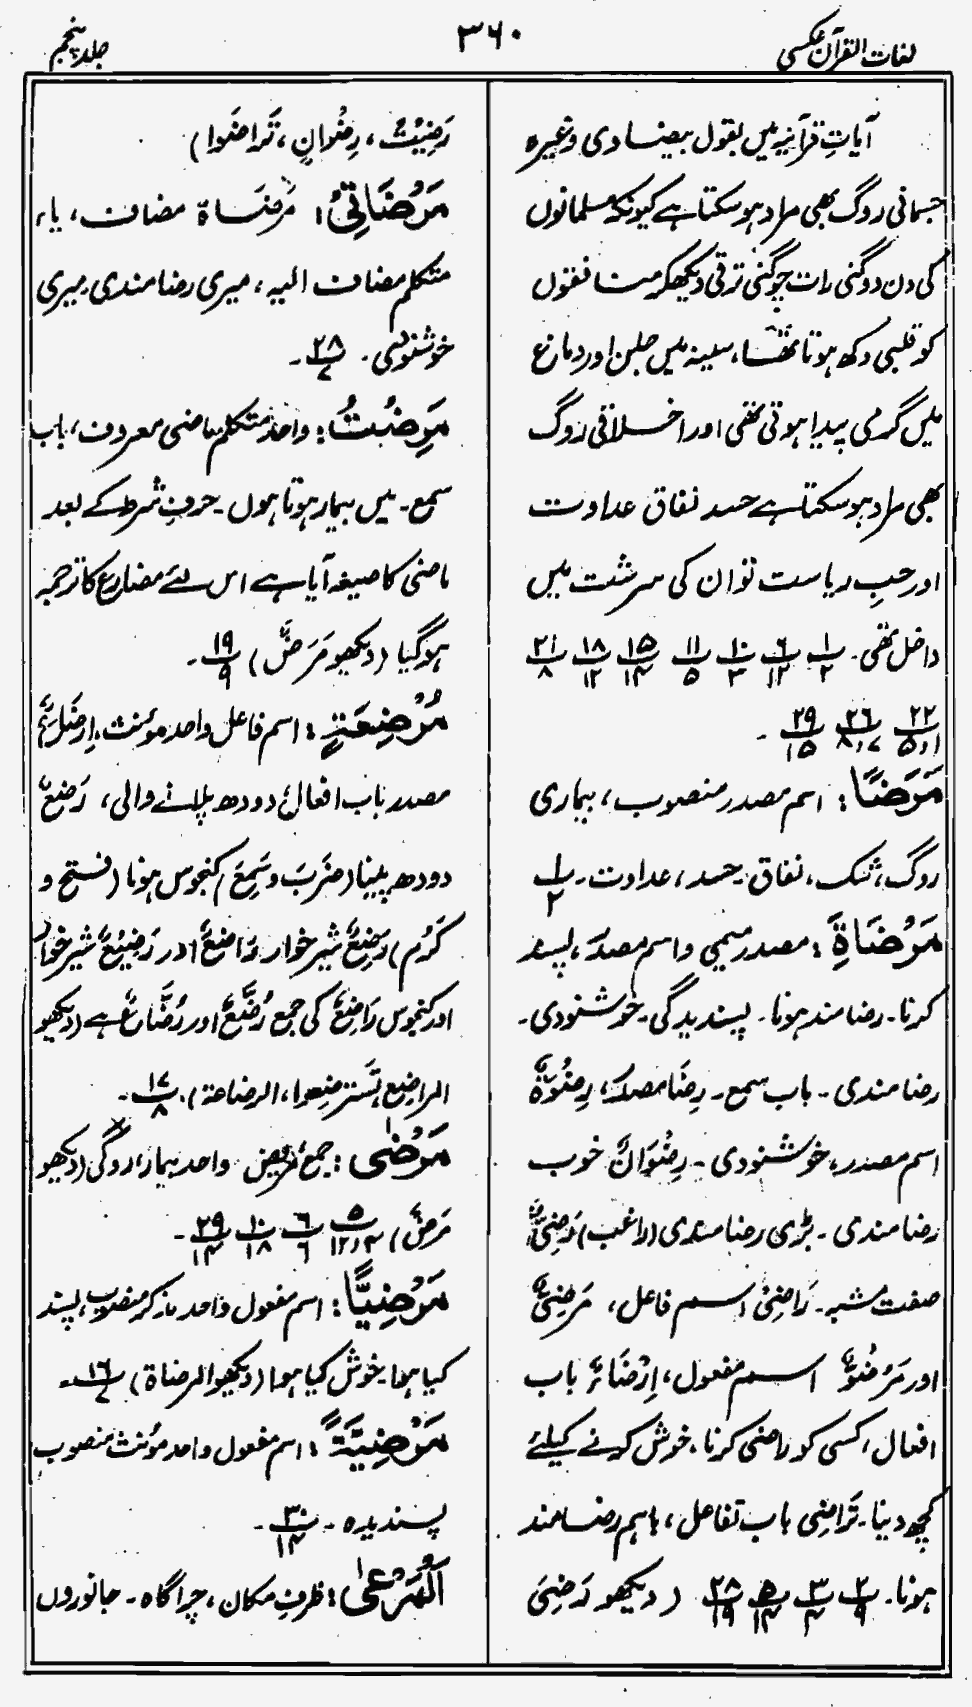 لغات القرآن عکسی
۳۶۰
جلد پنجم
آیاتِ قرآنیہ میں بقول بیضاوی وغیرہ
جسمانی روگ بھی مراد ہوسکتا ہے کیونکہ مسلمانوں
کی دن دوگنی رات چوگنی ترقی دیکھکر منافقوں
کو قلبی دکھ ہوتا تھا، سینہ میں جلن اور دماغ
میں گرمی پیدا ہوتی تھی اور اخلاقی روگ
بھی مراد ہوسکتا ہے حسد نفاق عداوت
اور حبِ ریاست تو ان کی سرشت میں
داخل تھی۔ ۱/۲ ۶/۱۲ ۱۰/۳ ۱۱/۵ ۱۵/۱۴ ۱۸/۱۲ ۲۱/۸
۲۲/۱،۵ ۲۶/۷،۸ ۲۹/۱۵ ۔
مَرَضًا: اسم مصدر منصوب، بیماری
روگ، شک، نفاق۔ حسد، عداوت۔ ۱/۲
مَرْضَاةِ: مصدر میمی و اسم مصدر، پسند
کرنا۔ رضامند ہونا۔ پسندیدگی۔ خوشنودی۔
رضامندی۔ باب سمع۔ رِضَا مصدر، رِضْوَةٌ
اسم مصدر، خوشنودی۔ رِضْوَانٌ خوب
رضامندی۔ بڑی رضامندی (راغب) رَضِیٌّ
صفت مشبہ۔ رَاضِیْ اسم فاعل، مَرْضِیٌّ
اور مَرْضُوٌّ اسم مفعول، اِرْضَاءٌ باب
افعال، کسی کو راضی کرنا، خوش کرنے کیلئے
کچھ دینا۔ تَرَاضِی باب تفاعل، باہم رضامند
ہونا۔ ۲/۹ ۳/۴ ۵/۱۴ ۲۸/۱۹ (دیکھو رَضِیَ
رَضِیْتُ، رِضْوانِ، تَراضَوا)
مَرْضَاتِیْ: مَرْضَاة مضاف، یاء
متکلم مضاف الیہ، میری رضامندی۔ میری
خوشنودی۔ ۲۸/۷ ۔
مَرِضْتُ: واحد متکلم ماضی معروف، باب
سمع۔ میں بیمار ہوتا ہوں۔ حرفِ شرط کے بعد
ماضی کا صیغہ آیا ہے اس لئے مضارع کا ترجمہ
ہوگیا (دیکھو مَرَضٌ) ۱۹/۹ ۔
مُرْضِعَةٍ: اسم فاعل واحد مؤنث، اِرْضَاعٌ
مصدر باب افعال دودھ پلانے والی، رَضْعٌ
دودھ پینا (ضَرَبَ و سَمِعَ) کنجوس ہونا (فتح و
کَرُم) رَضِعٌ شیر خوار رَاضِعٌ اور رَضِیْعٌ شیر خوار
اور کنجوس رَاضِعٌ کی جمع رُضَّعٌ اور رُضَّاعٌ ہے (دیکھو
المراضع، تَسْتَرْضِعوا، الرضاعة)، ۱۷/۸ ۔
مَرْضٰی: جمع مریض واحد بیمار، روگی (دیکھو
مَرَضٌ) ۵/۴،۱۲ ۶/۶ ۱۰/۱۸ ۲۹/۱۴ ۔
مَرْضِیًّا: اسم مفعول واحد مذکر منصوب، پسند
کیا ہوا۔ خوش کیا ہوا (دیکھو المرضاة) ۱۶/۷ ۔
مَرْضِیَّةً: اسم مفعول واحد مؤنث منصوب
پسندیدہ۔ ۳۰/۱۴ ۔
اَلْمَرْعٰی: ظرفِ مکان، چراگاہ۔ جانوروں